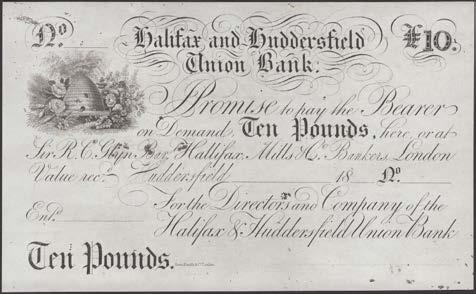 No Halifax and Huddersfield £10.
Union Bank.
I Promise to pay the Bearer
on Demand, Ten Pounds, here, or at
Sir R. C. Glyn Bar.t, Hallifax, Mills & Co. Bankers, London
Value rec.d Huddersfield 18 No.
For the Directors and Company of the
Ent.d Halifax & Huddersfield Union Bank
Ten Pounds.